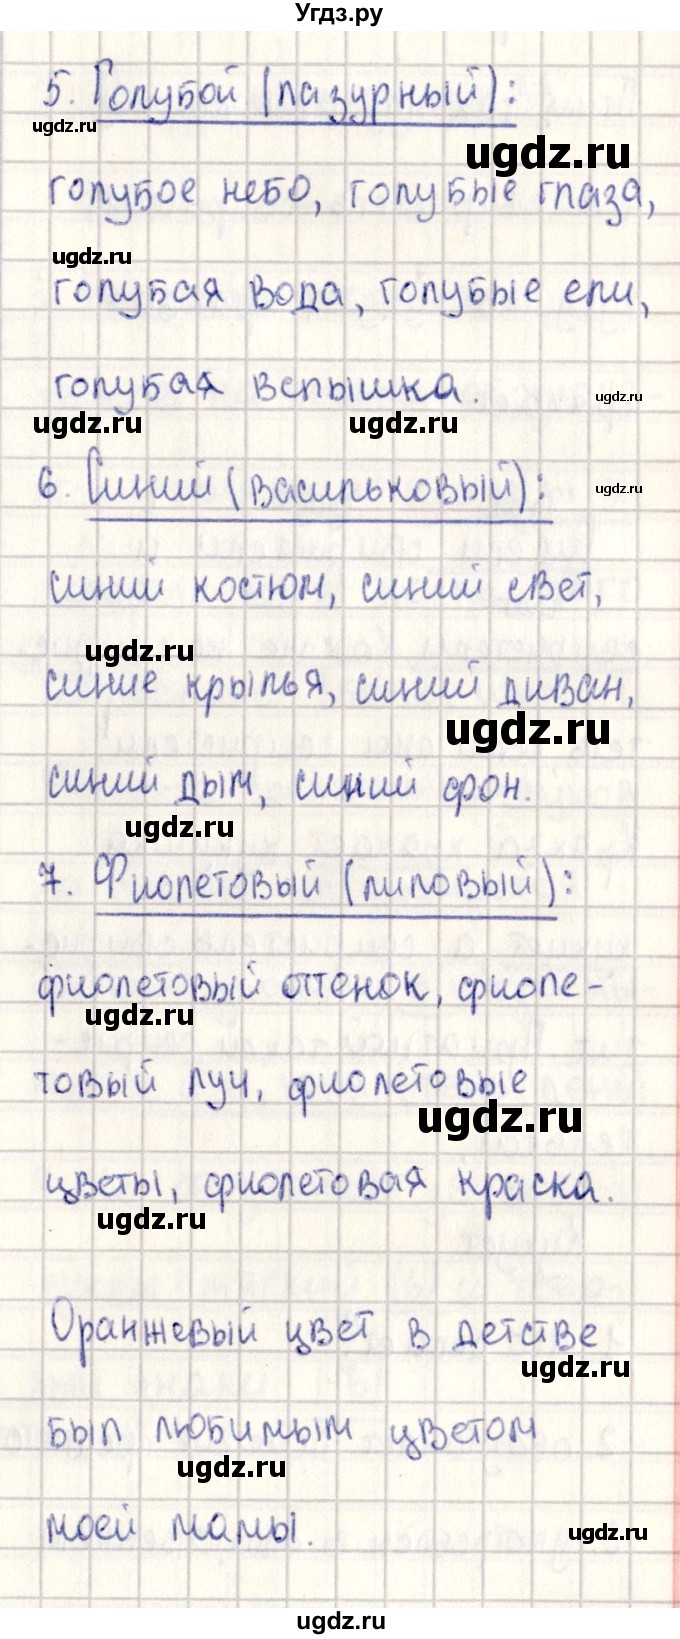 Угдз.ру
5. Голубой (лазурный):
ugdz.ru
ugdz.ru
голубое небо, голубые глаза,
ugdz.ru
голубая вода, голубые ели,
голубая вспышка.
ugdz.ru
ugdz.ru
ugdz.ru
6. Синий (васильковый):
ugdz.ru
синий костюм, синий свет,
ugdz.ru
синие крылья, синий диван,
ugdz.ru
синий дым, синий фон.
ugdz.ru
7. Фиолетовый (лиловый):
фиолетовый оттенок, фиоле-
ugdz.ru
товый луч, фиолетовые
ugdz.ru
цветы, фиолетовая краска.
ugdz.ru
Оранжевый цвет в детстве
ugdz.ru
был любимым цветом
ugdz.ru
моей мамы.
ugdz.ru
ugdz.ru